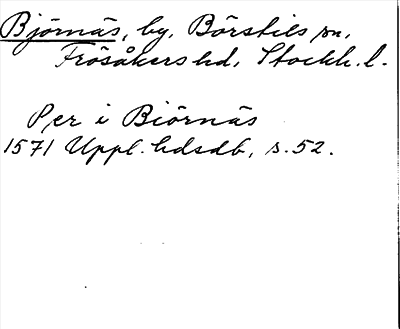 Björnäs, by, Börstils sn,
Frösåkers hd, Stockh. l.
Per i Biörnäs
1571 Uppl. hdsdb, s. 52.